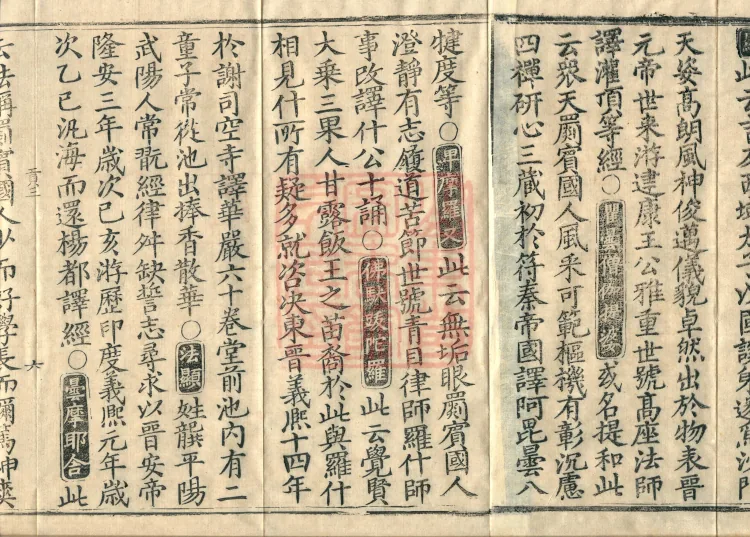 天姿髙朗風神俊邁儀貌卓然出於物表晉
元帝世来游建康王公雅重世號髙座法師
譯灌頂等經○
或名提和此
云衆天罽賓國人風采可範樞機有彰沉慮
四禪研心三藏初於符秦帝國譯阿毘曇八
犍度等○卑摩羅叉此云無垢眼罽賓國人
澄静有志履道苦節世號青目律師羅什師
事改譯什公十誦○佛馱跋陀羅此云覺賢
大乗三果人甘露飯王之苗裔於此與羅什
相見什所有疑多就咨决東晉義熈十四年
於謝司空寺譯華嚴六十卷堂前池内有二
童子常從池出捧香散華○法顯姓龔平陽
武陽人常翫經律舛缺誓志尋求以晉安帝
隆安三年歲次己亥游歷印度義熈元年歲
次乙巳汎海而還楊都譯經○曇摩耶舎此
云法稱罽賓國人少而好學長而彌篤神爽
六